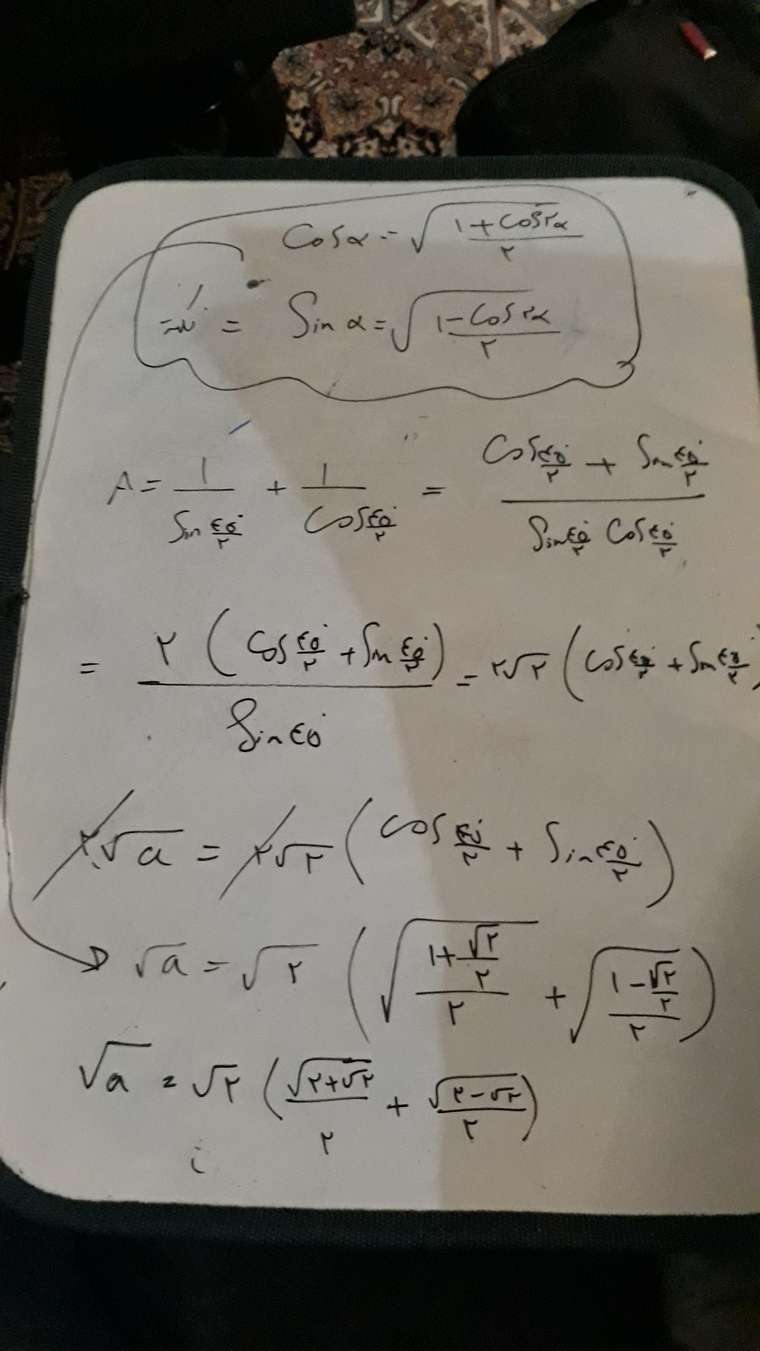 Cosα = √(1+Cos۲α / ۲)
= Sin α = √(1−Cos۲α / ۲)
A = 1 / Sin ۴۵°/۲ + 1 / Cos ۴۵°/۲ = (Cos ۴۵°/۲ + Sin ۴۵°/۲) / (Sin ۴۵°/۲ Cos ۴۵°/۲)
= ۲ (Cos ۴۵°/۲ + Sin ۴۵°/۲) / Sin ۴۵° = ۲√۲ (Cos ۴۵°/۲ + Sin ۴۵°/۲)
۲√a = ۲√۲ (Cos ۴۵°/۲ + Sin ۴۵°/۲)
√a = √۲ (√((1+√۲/۲) / ۲) + √((1−√۲/۲) / ۲))
√a = √۲ (√(۲+√۲) / ۲ + √(۲−√۲) / ۲)